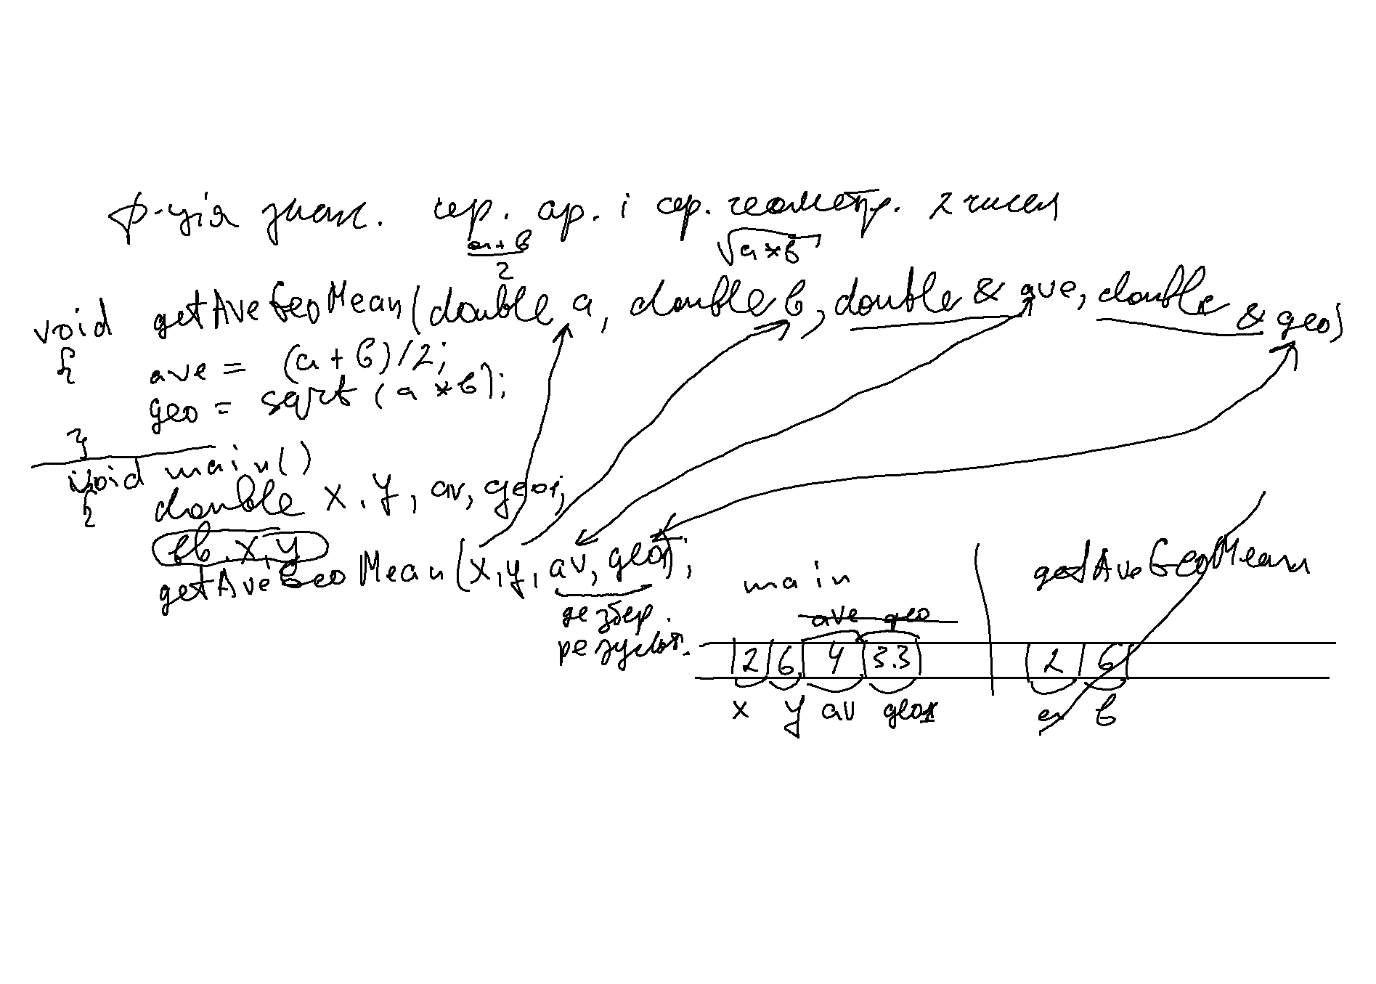 ф-ція знах. сер. ар. і сер. геометр. 2 чисел
a+b
2
√a*b
void getAveGeoMean(double a, double b, double & ave, double & geo)
{
ave = (a+b)/2;
geo = sqrt (a*b);
}
void main()
{
double x, y, av, geo1;
вв. x,y
getAveGeoMean(x,y, av, geo1);
де збер.
результ.
main
getAveGeoMean
ave geo
2 6 4 3.3
2 6
x y av geo1
a b